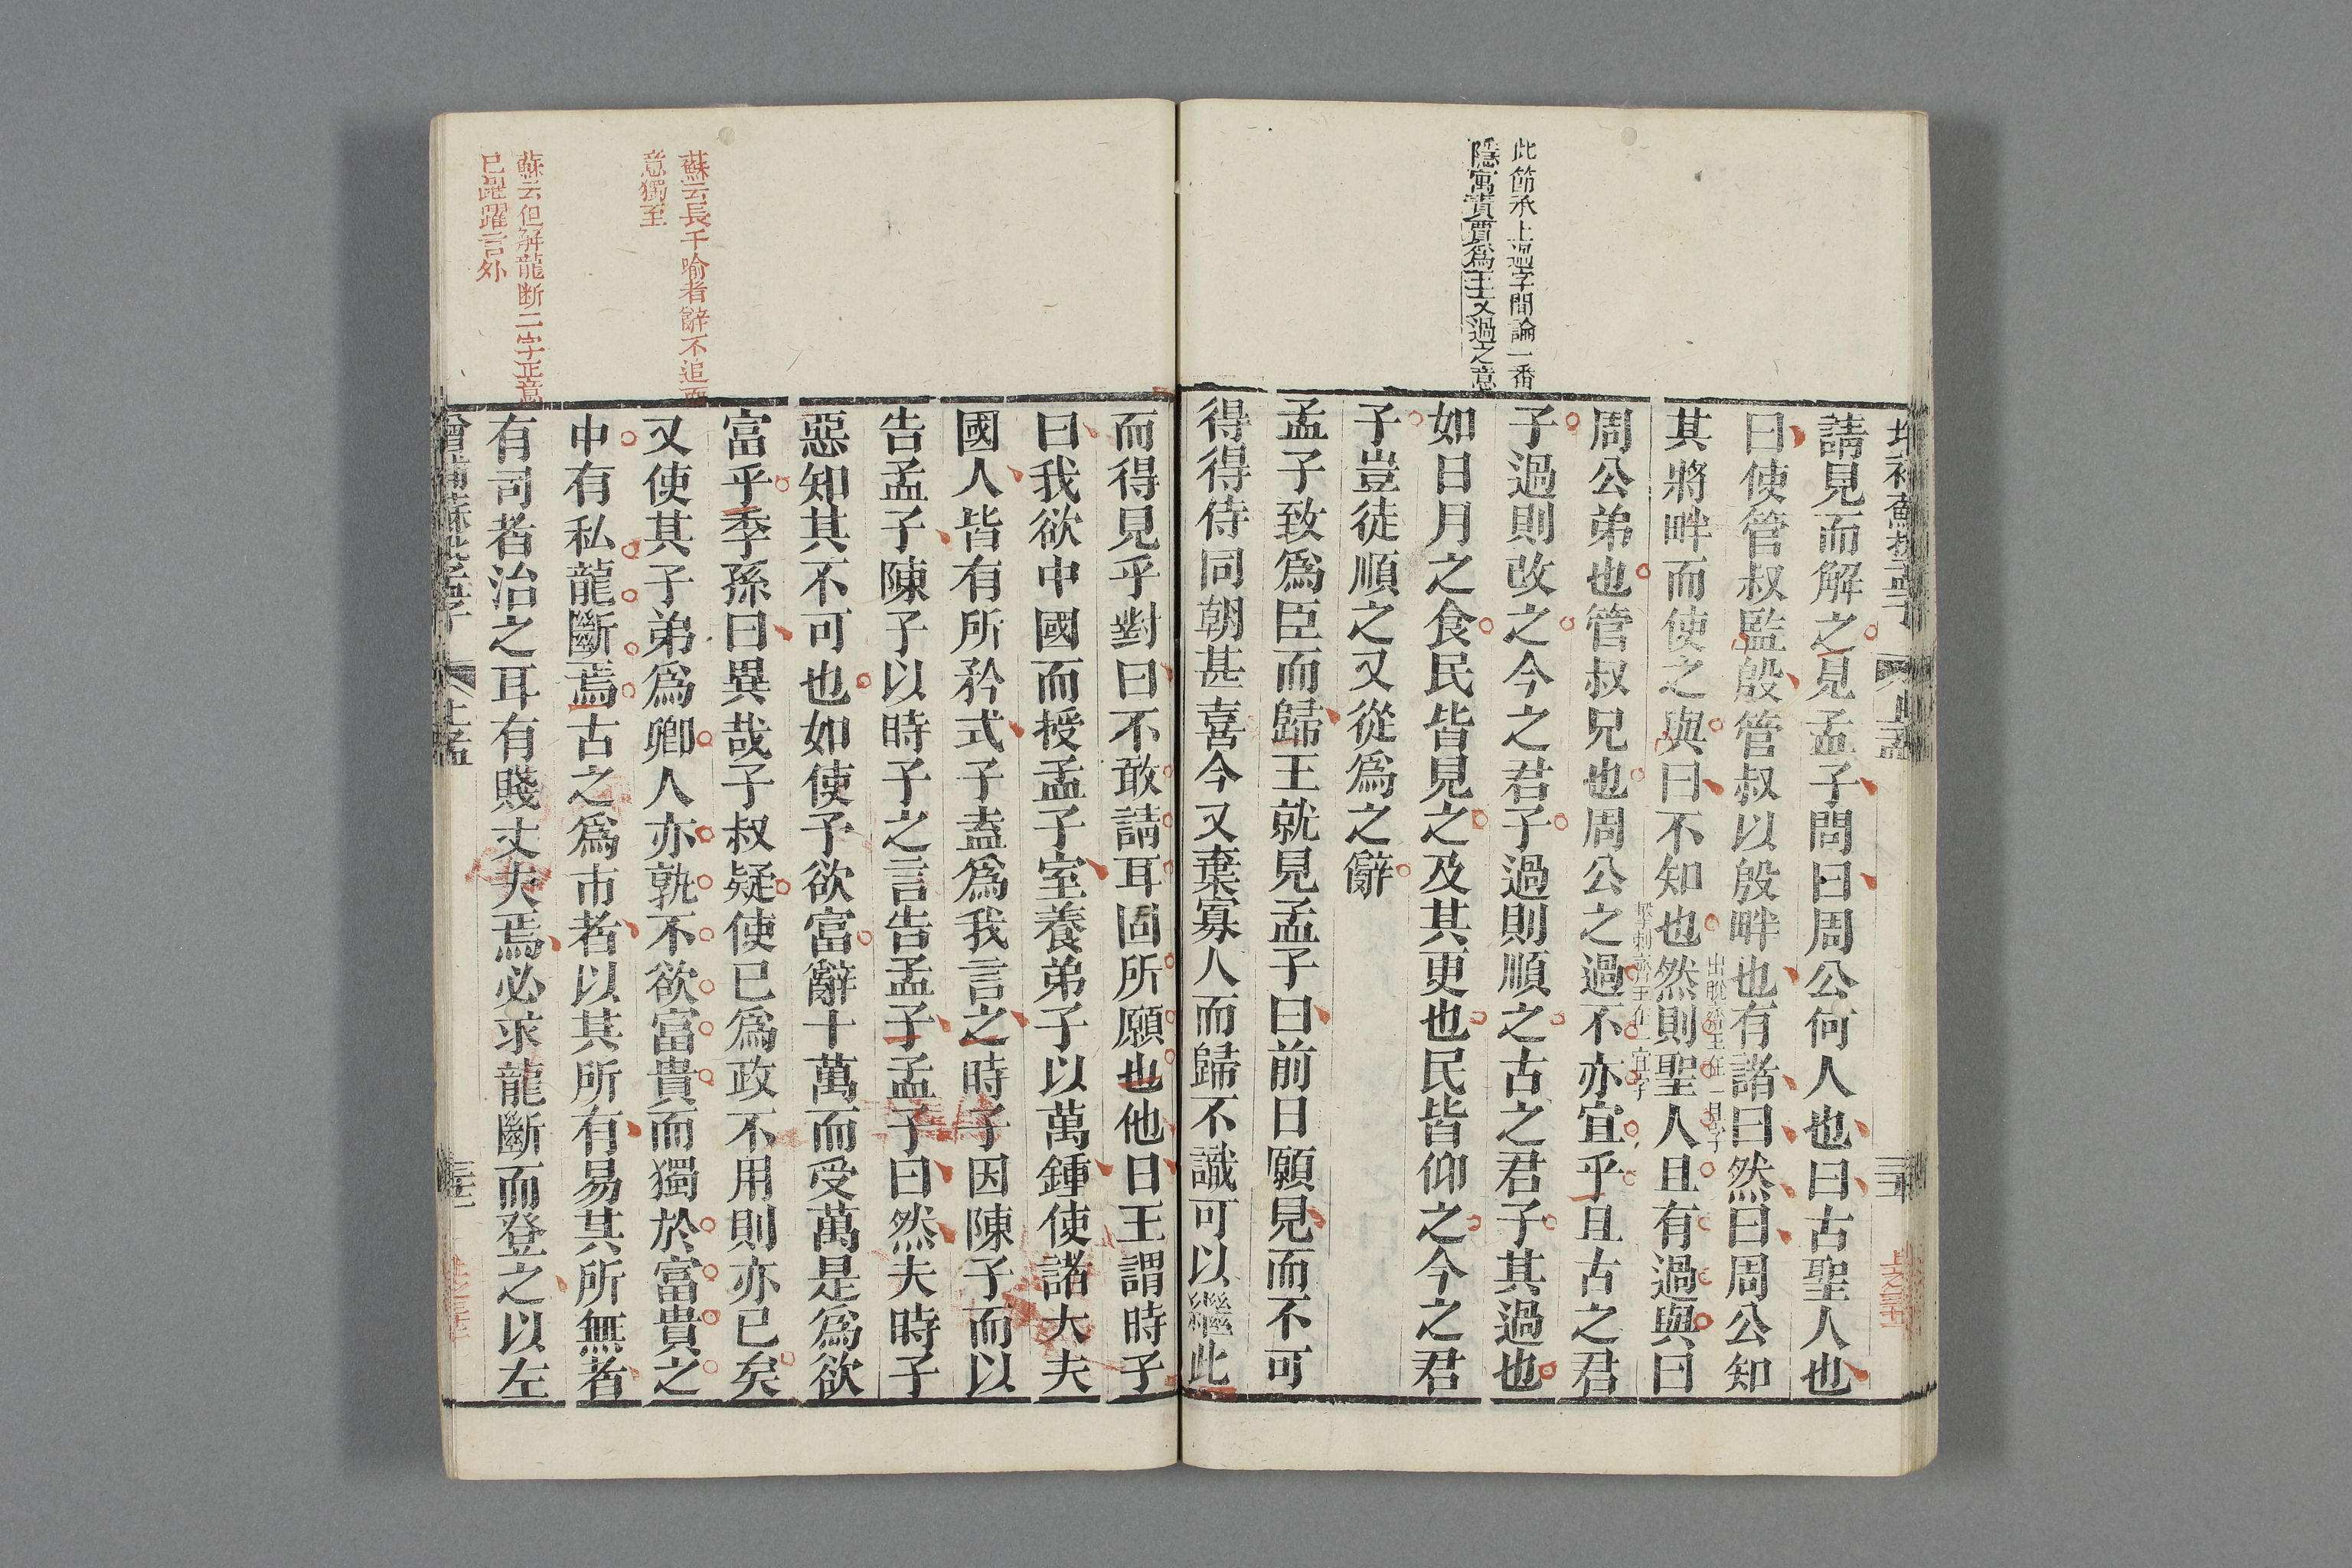 此節承上過字間論一番
隱寓責賈爲王又過之意
請見而解之見孟子問曰周公何人也曰古聖人也
曰使管叔監殷管叔以殷畔也有諸曰然曰周公知
其將畔而使之與曰不知也然則聖人且有過與曰
周公弟也管叔兄也周公之過不亦宜乎且古之君
子過則改之今之君子過則順之古之君子其過也
如日月之食民皆見之及其更也民皆仰之今之君
子豈徒順之又從爲之辭
孟子致爲臣而歸王就見孟子曰前日願見而不可
得得侍同朝甚喜今又棄寡人而歸不識可以繼此
蘇云長千喻者辭不迫而
意獨至
蘇云但解龍断二字正意
已躍躍言外
而得見乎對曰不敢請耳固所願也他日王謂時子
曰我欲中國而授孟子室養弟子以萬鍾使諸大夫
國人皆有所矜式子盍爲我言之時子因陳子而以
告孟子陳子以時子之言告孟子孟子曰然夫時子
惡知其不可也如使予欲富辭十萬而受萬是爲欲
富乎季孫曰異哉子叔疑使已爲政不用則亦已矣
又使其子弟爲卿人亦孰不欲富貴而獨於富貴之
中有私龍斷焉古之爲市者以其所有易其所無者
有司者治之耳有賤丈夫焉必求龍斷而登之以左